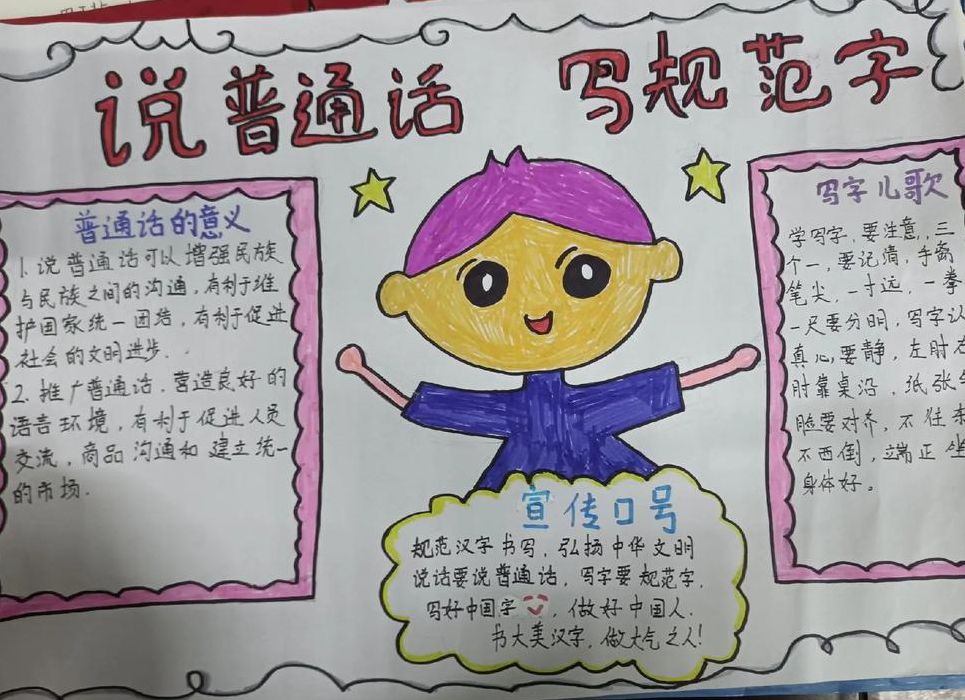 说普通话 写规范字
普通话的意义
1.说普通话可以增强民族
与民族之间的沟通,有利于维
护国家统一团结,有利于促进
社会的文明进步.
2.推广普通话.营造良好的
语言环境,有利于促进人员
交流,商品沟通和建立统一
的市场.
宣传口号
规范汉字书写,弘扬中华文明
说话要说普通话,写字要规范字.
写好中国字,做好中国人.
书大美汉字,做大气之人!
写字儿歌
学写字,要注意,三
个一,要记清,手离
笔尖,一寸远,一拳
一尺要分明,写字认
真心要静,左肘右
肘靠桌沿,纸张
脸要对齐,不往东
不西倒,端正坐
身体好。